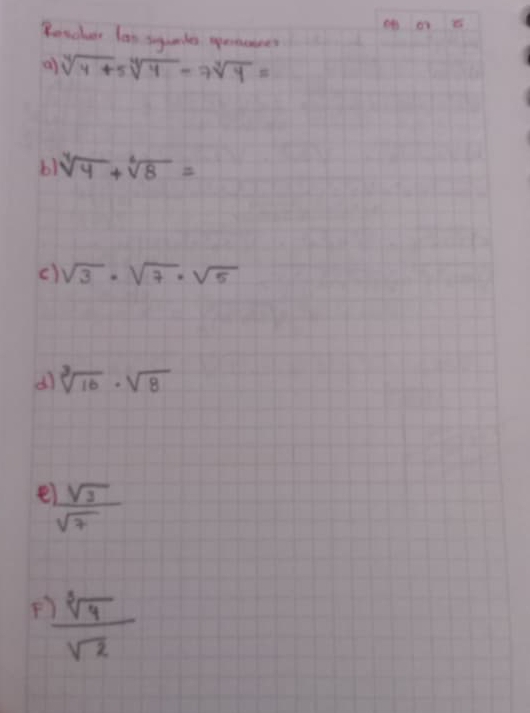 Resolver las siguientes operaciones
a) ∜4 + 5∜4 - 7∜4 =
b) ∜4 + ⁶√8 =
c) √3 · √7 · √5
d) ∛16 · √8
e) √3 / √7
F) ∛4 / √2